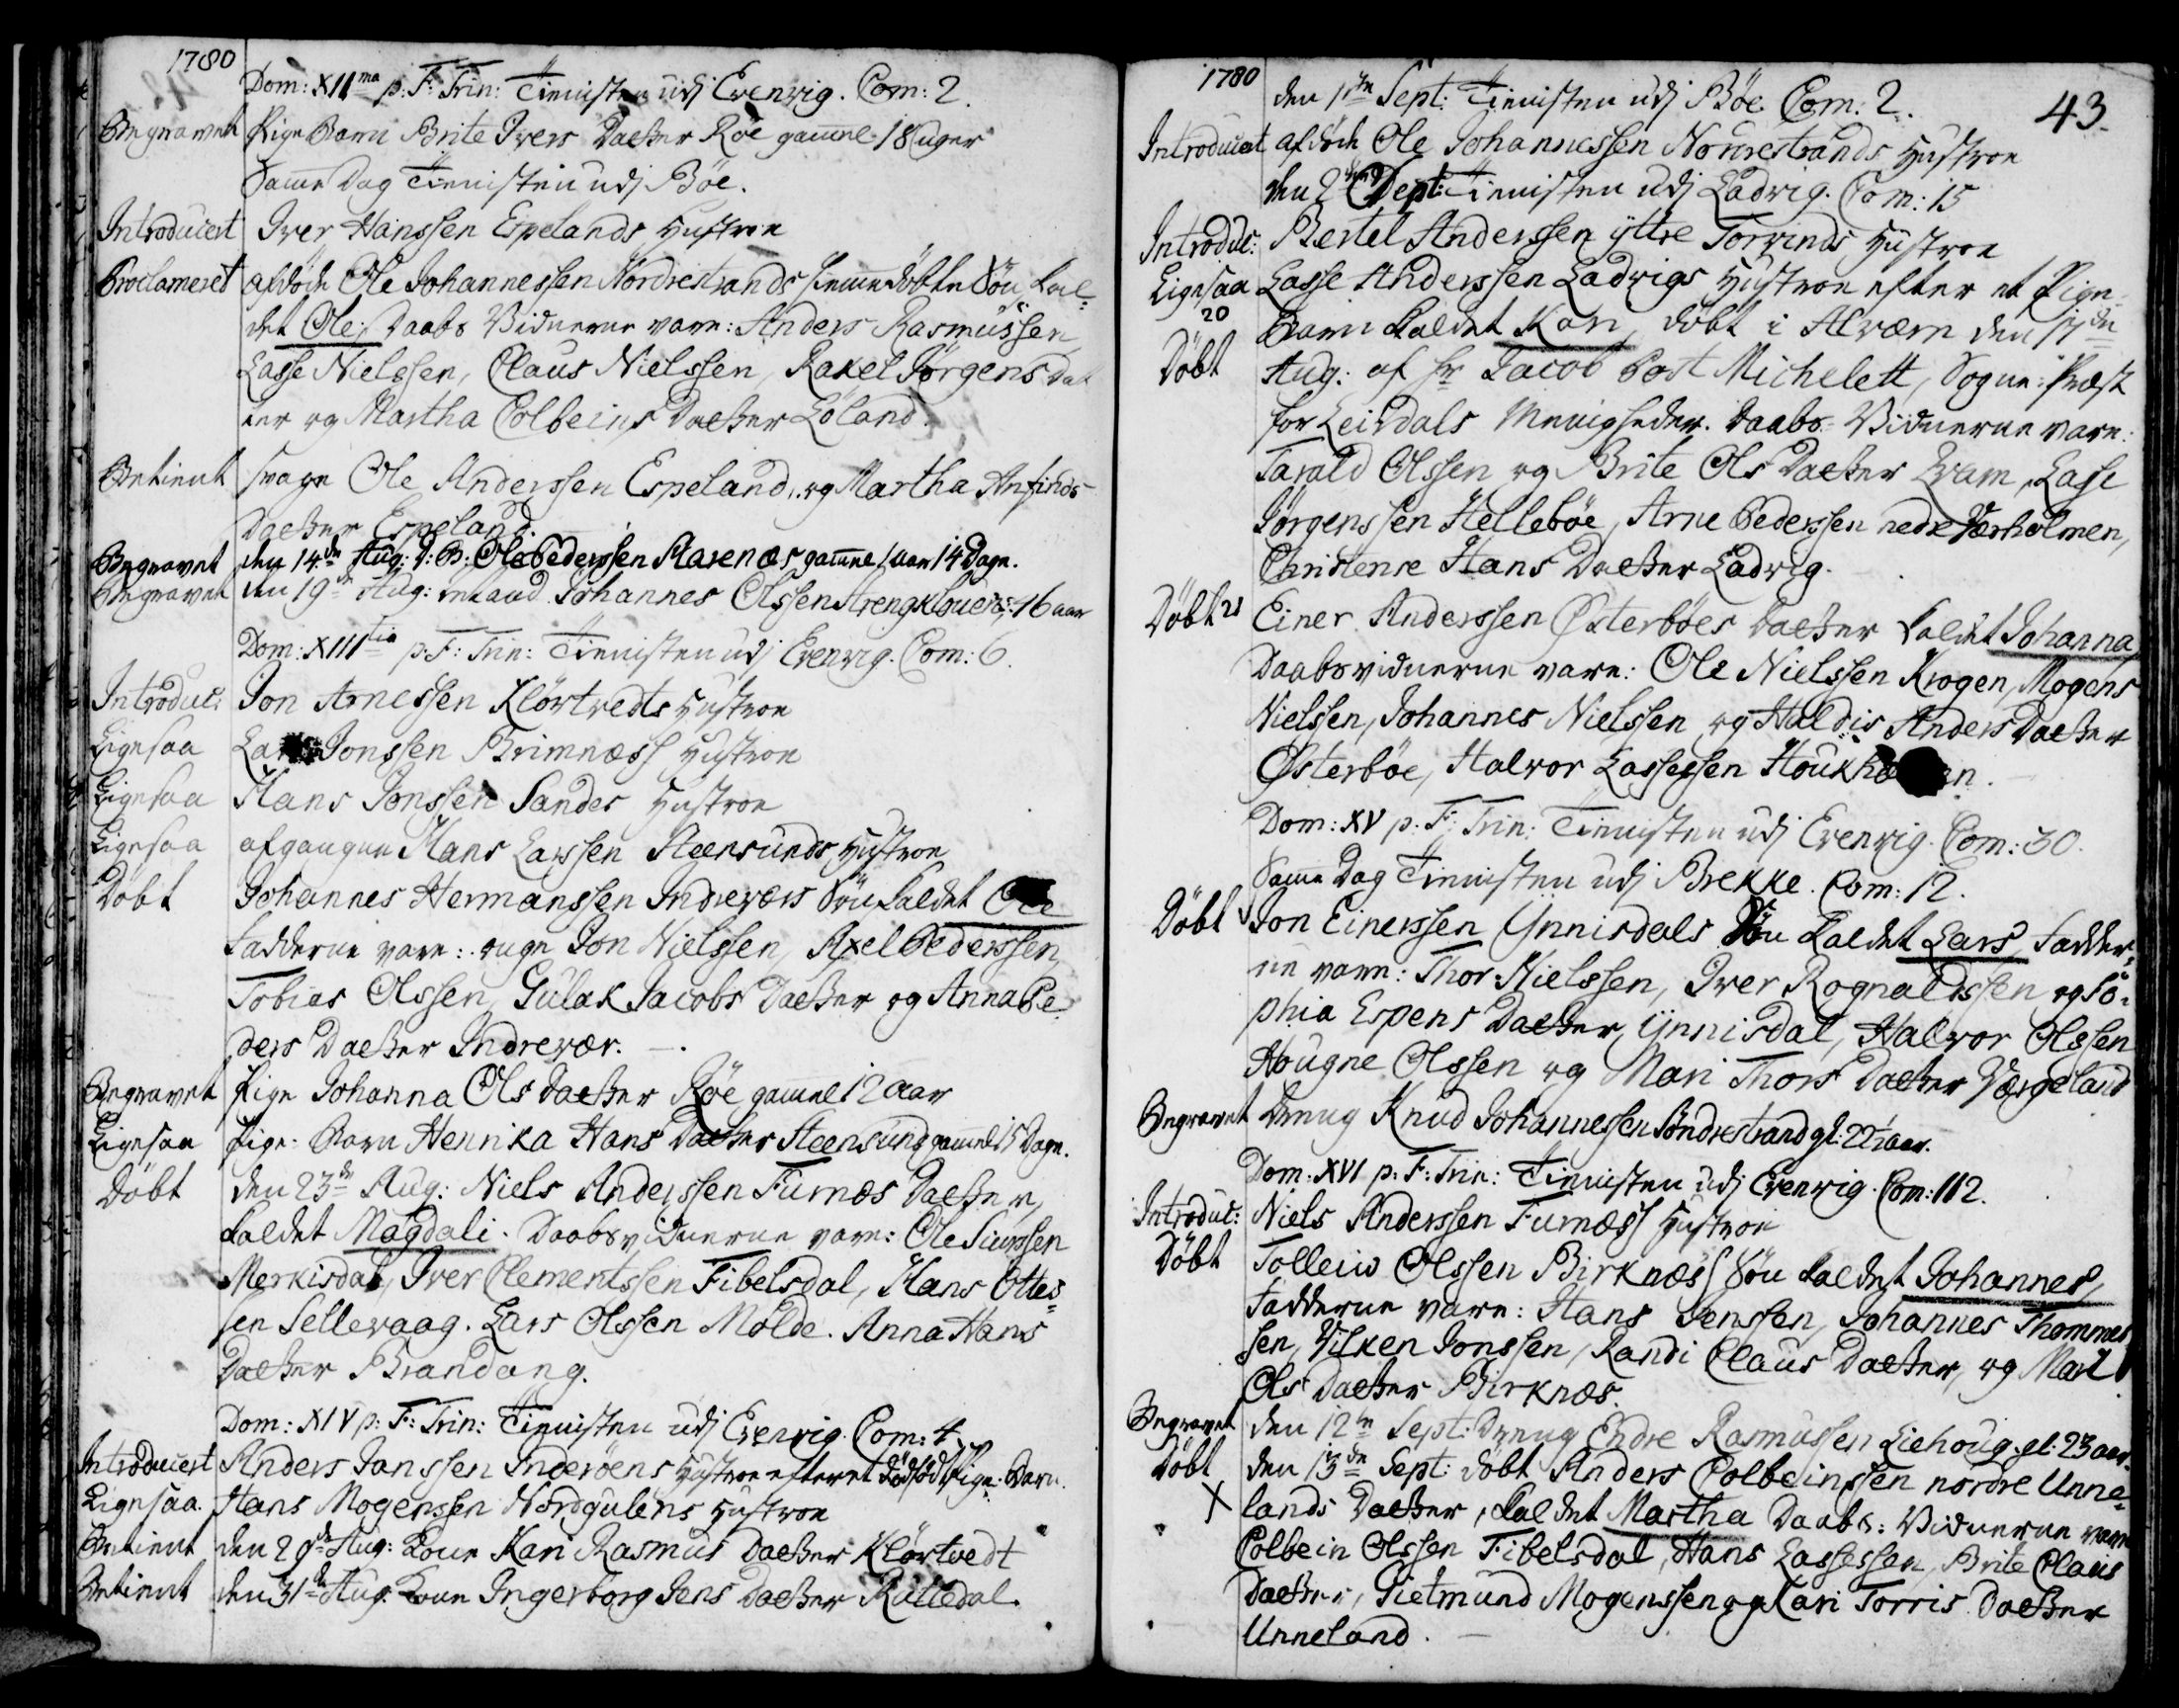 1780
Dom: XII ma p: F: Trin: Tienisten udj Evenvig. Com: 2.
Begravet Pige Barn Brite Ivers Daatter Röe gamel 18 uger
Samme Dag Tienisten udj Böe.
Introducert Iver Hanssen Espelands Hustroe
Proclameret afdöde Ole Johannessen Nordrestrands hiemmedöbte Sön, kal-
det Ole; Daabs Vidnerne vare: Anders Rasmussen,
Lasse Nielssen, Claus Nielssen, Rakel Jörgens Dat
ter og Martha Colbeins Daatter Löland.
Betient svage Ole Anderssen Espeland, og Martha Anfinds-
Daatter Espeland.
Begravet den 14de Aug: D: B: Ole Pederssen Starenæs gamel 1 aar 14 Dage.
Begravet den 19de Aug: Johannes Olssen 16 aar
Dom: XIII tia p: F: Trin: Tienisten udj Evenvig. Com: 6.
Introduc: Jon Arnessen Klörtvedts Hustroe
Ligesaa Jonssen Brimnæss Hustroe
Ligesaa Hans Jonssen Sandes Hustroe
Ligesaa afgangne Hans Larssen Steensunds Hustroe
Döbt Johannes Hermanssen Indreværs Sön kaldet Ole
Fadderne vare: unge Jon Nielssen, Axel Pederssen,
Tobias Olssen, Gulak Jacobs Daatter og Anna Pe-
ders Daatter Indrevær.
Begravet Pige Johanna Ols Daatter Röe gamel 12 aar
Ligesaa Pige-Barn Henrika Hans Daatter Steensund gamel 15 Dage.
Döbt den 23de Aug: Niels Anderssen Furnæs Daatter,
kaldet Magdali. Daabsvidnerne vare: Ole Siurssen
Merkisdal, Iver Clementssen Fibelsdal, Hans Ottes-
sen Sellevaag. Lars Olssen Molde. Anna Hans
Daatter Brandang.
Dom: XIV p: F: Trin: Tienisten udj Evenvig. Com: 4.
Introducert Anders Janssen Inderöens Hustroe efter et dödföd Pige-Barn.
Ligesaa. Hans Mogenssen Nordgulens Hustroe
Betient den 29de Aug: Kone Kari Rasmus Daatter Klörtvedt
Betient den 31de Aug. Kone Ingerborg Jens Daatter Rutledal.
1780
43.
den 1ste Sept: Tienisten udj Böe. Com: 2.
Introducert afdöde Ole Johannessen Nordrestrands Hustroe
den 2den Sept: Tienisten udj Ladvig. Com: 15
Introduc: Bertel Anderssen ÿttre Torvinds Hustroe
Ligesaa Lasse Anderssen Ladvigs Hustroe efter et Pige-
20
Barn kaldet Kari, döbt i Alværn den 17de
Döbt Aug: af Hr Jacob Post Michelett, Sogne-Præst
for Leirdals Menigheder. Daabs-Vidnerne vare:
Tarald Olssen og Brite Ols Daatter Kvam, Lasse
Jörgenssen Helleböe, Arne Pederssen nedre Værholmen,
Christense Hans Daatter Ladvig.
Döbt 21 Einer Anderssen Österböes Daatter kaldet Johanna
Daabsvidnerne vare: Ole Nielssen Krogen, Mogens
Nielssen, Johannes Nielssen og Haldis Anders Daatter
Österböe, Halvor Lassessen
Dom: XV p: F: Trin: Tienisten udj Evenvig. Com: 30.
Samme Dag Tienisten udj Brekke. Com: 12.
Döbt Jon Einerssen Ÿnnisdals Sön kaldet Lars, Fadder-
ne vare: Thor Nielssen, Iver Rognaldssen og So-
phia Espens Daatter, Ÿnnisdal, Halvor Olssen
Hougne Olssen og Mari Thors Daatter Værgeland
Begravet Dreng Knud Johannessen Söndrestrand gl: 22 aar.
Dom: XVI p: F: Trin: Tienisten udj Evenvig. Com: 112.
Introduc: Niels Anderssen Furnæss Hustroe
Döbt Tolleiv Olssen Birknæss Sön kaldet Johannes,
Fadderne vare: Hans Jenssen, Johannes Thommes
sen, Vilken Jonssen, Randi Claus Daatter, og Mari
Ols Daatter Birknæs.
Begravet den 12te Sept: Dreng Endre Rasmussen Liehoug. gl: 23 aar.
Döbt den 13de Sept: döbt Anders Colbeinssen nordre Unne-
X lands Daatter, kaldet Martha Daabs: Vidnerne vare
Colbein Olssen Fibelsdal, Hans Lassessen, Brite Claus
Daatter, Gietmund Mogenssen og Kari Torris Daatter
Unneland.